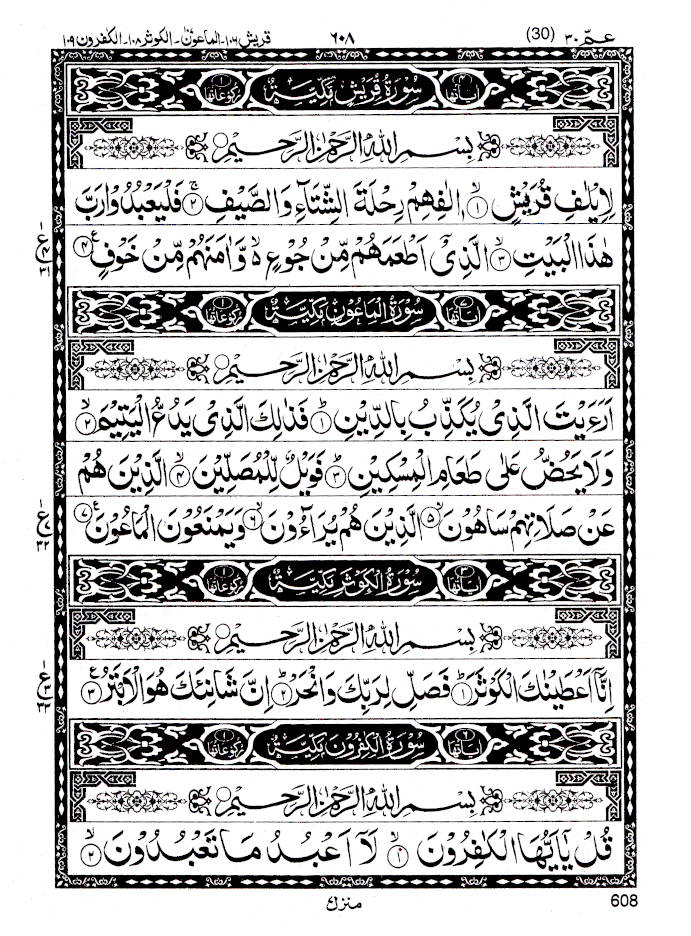 عمّ ۳۰ (30) ۶۰۸ قريش ۱۰۶۔الماعون۱۰۷۔الكوثر۱۰۸۔الكفرون ۱۰۹
اٰيَاتُهَا ۴ سُوْرَةُ قُرَيْشٍ مَّكِّيَّةٌ رُكُوْعَاتُهَا ۱
بِسْمِ اللّٰهِ الرَّحْمٰنِ الرَّحِيْمِ
لِاِيْلٰفِ قُرَيْشٍ ۱ اٖلٰفِهِمْ رِحْلَةَ الشِّتَآءِ وَالصَّيْفِ ۲ فَلْيَعْبُدُوْا رَبَّ
هٰذَا الْبَيْتِ ۳ الَّذِيْٓ اَطْعَمَهُمْ مِّنْ جُوْعٍ ۵ وَّاٰمَنَهُمْ مِّنْ خَوْفٍ ۴
۱ ع ۴ ۳۱
اٰيَاتُهَا ۷ سُوْرَةُ الْمَاعُوْنِ مَكِّيَّةٌ رُكُوْعَاتُهَا ۱
بِسْمِ اللّٰهِ الرَّحْمٰنِ الرَّحِيْمِ
اَرَءَيْتَ الَّذِيْ يُكَذِّبُ بِالدِّيْنِ ۱ فَذٰلِكَ الَّذِيْ يَدُعُّ الْيَتِيْمَ ۲
وَلَا يَحُضُّ عَلٰى طَعَامِ الْمِسْكِيْنِ ۳ فَوَيْلٌ لِّلْمُصَلِّيْنَ ۴ الَّذِيْنَ هُمْ
عَنْ صَلَاتِهِمْ سَاهُوْنَ ۵ الَّذِيْنَ هُمْ يُرَآءُوْنَ ۶ وَيَمْنَعُوْنَ الْمَاعُوْنَ ۷
۱ ع ۷ ۳۲
اٰيَاتُهَا ۳ سُوْرَةُ الْكَوْثَرِ مَكِّيَّةٌ رُكُوْعَاتُهَا ۱
بِسْمِ اللّٰهِ الرَّحْمٰنِ الرَّحِيْمِ
اِنَّآ اَعْطَيْنٰكَ الْكَوْثَرَ ۱ فَصَلِّ لِرَبِّكَ وَانْحَرْ ۲ اِنَّ شَانِئَكَ هُوَ الْاَبْتَرُ ۳
۱ ع ۳ ۳۳
اٰيَاتُهَا ۶ سُوْرَةُ الْكٰفِرُوْنَ مَكِّيَّةٌ رُكُوْعَاتُهَا ۱
بِسْمِ اللّٰهِ الرَّحْمٰنِ الرَّحِيْمِ
قُلْ يٰٓاَيُّهَا الْكٰفِرُوْنَ ۱ لَآ اَعْبُدُ مَا تَعْبُدُوْنَ ۲
منزل ۷ 608